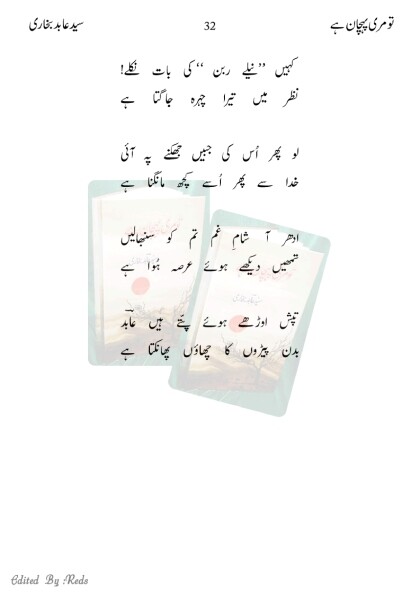 تو مری پہچان ہے 32 سید عابد بخاری
کہیں ’’نیلے ربن‘‘ کی بات نکلے!
نظر میں تیرا چہرہ جاگتا ہے
لو پھر اُس کی جبیں جھکنے پہ آئی
خدا سے پھر اُسے کچھ مانگنا ہے
ادھر آ شامِ غم تم کو سنبھالیں
تمھیں دیکھے ہوئے عرصہ ہُوا ہے
تپش اوڑھے ہوئے پتّے ہیں عابدؔ
بدن پیڑوں کا چھاؤں پھانکتا ہے
Edited By Reds